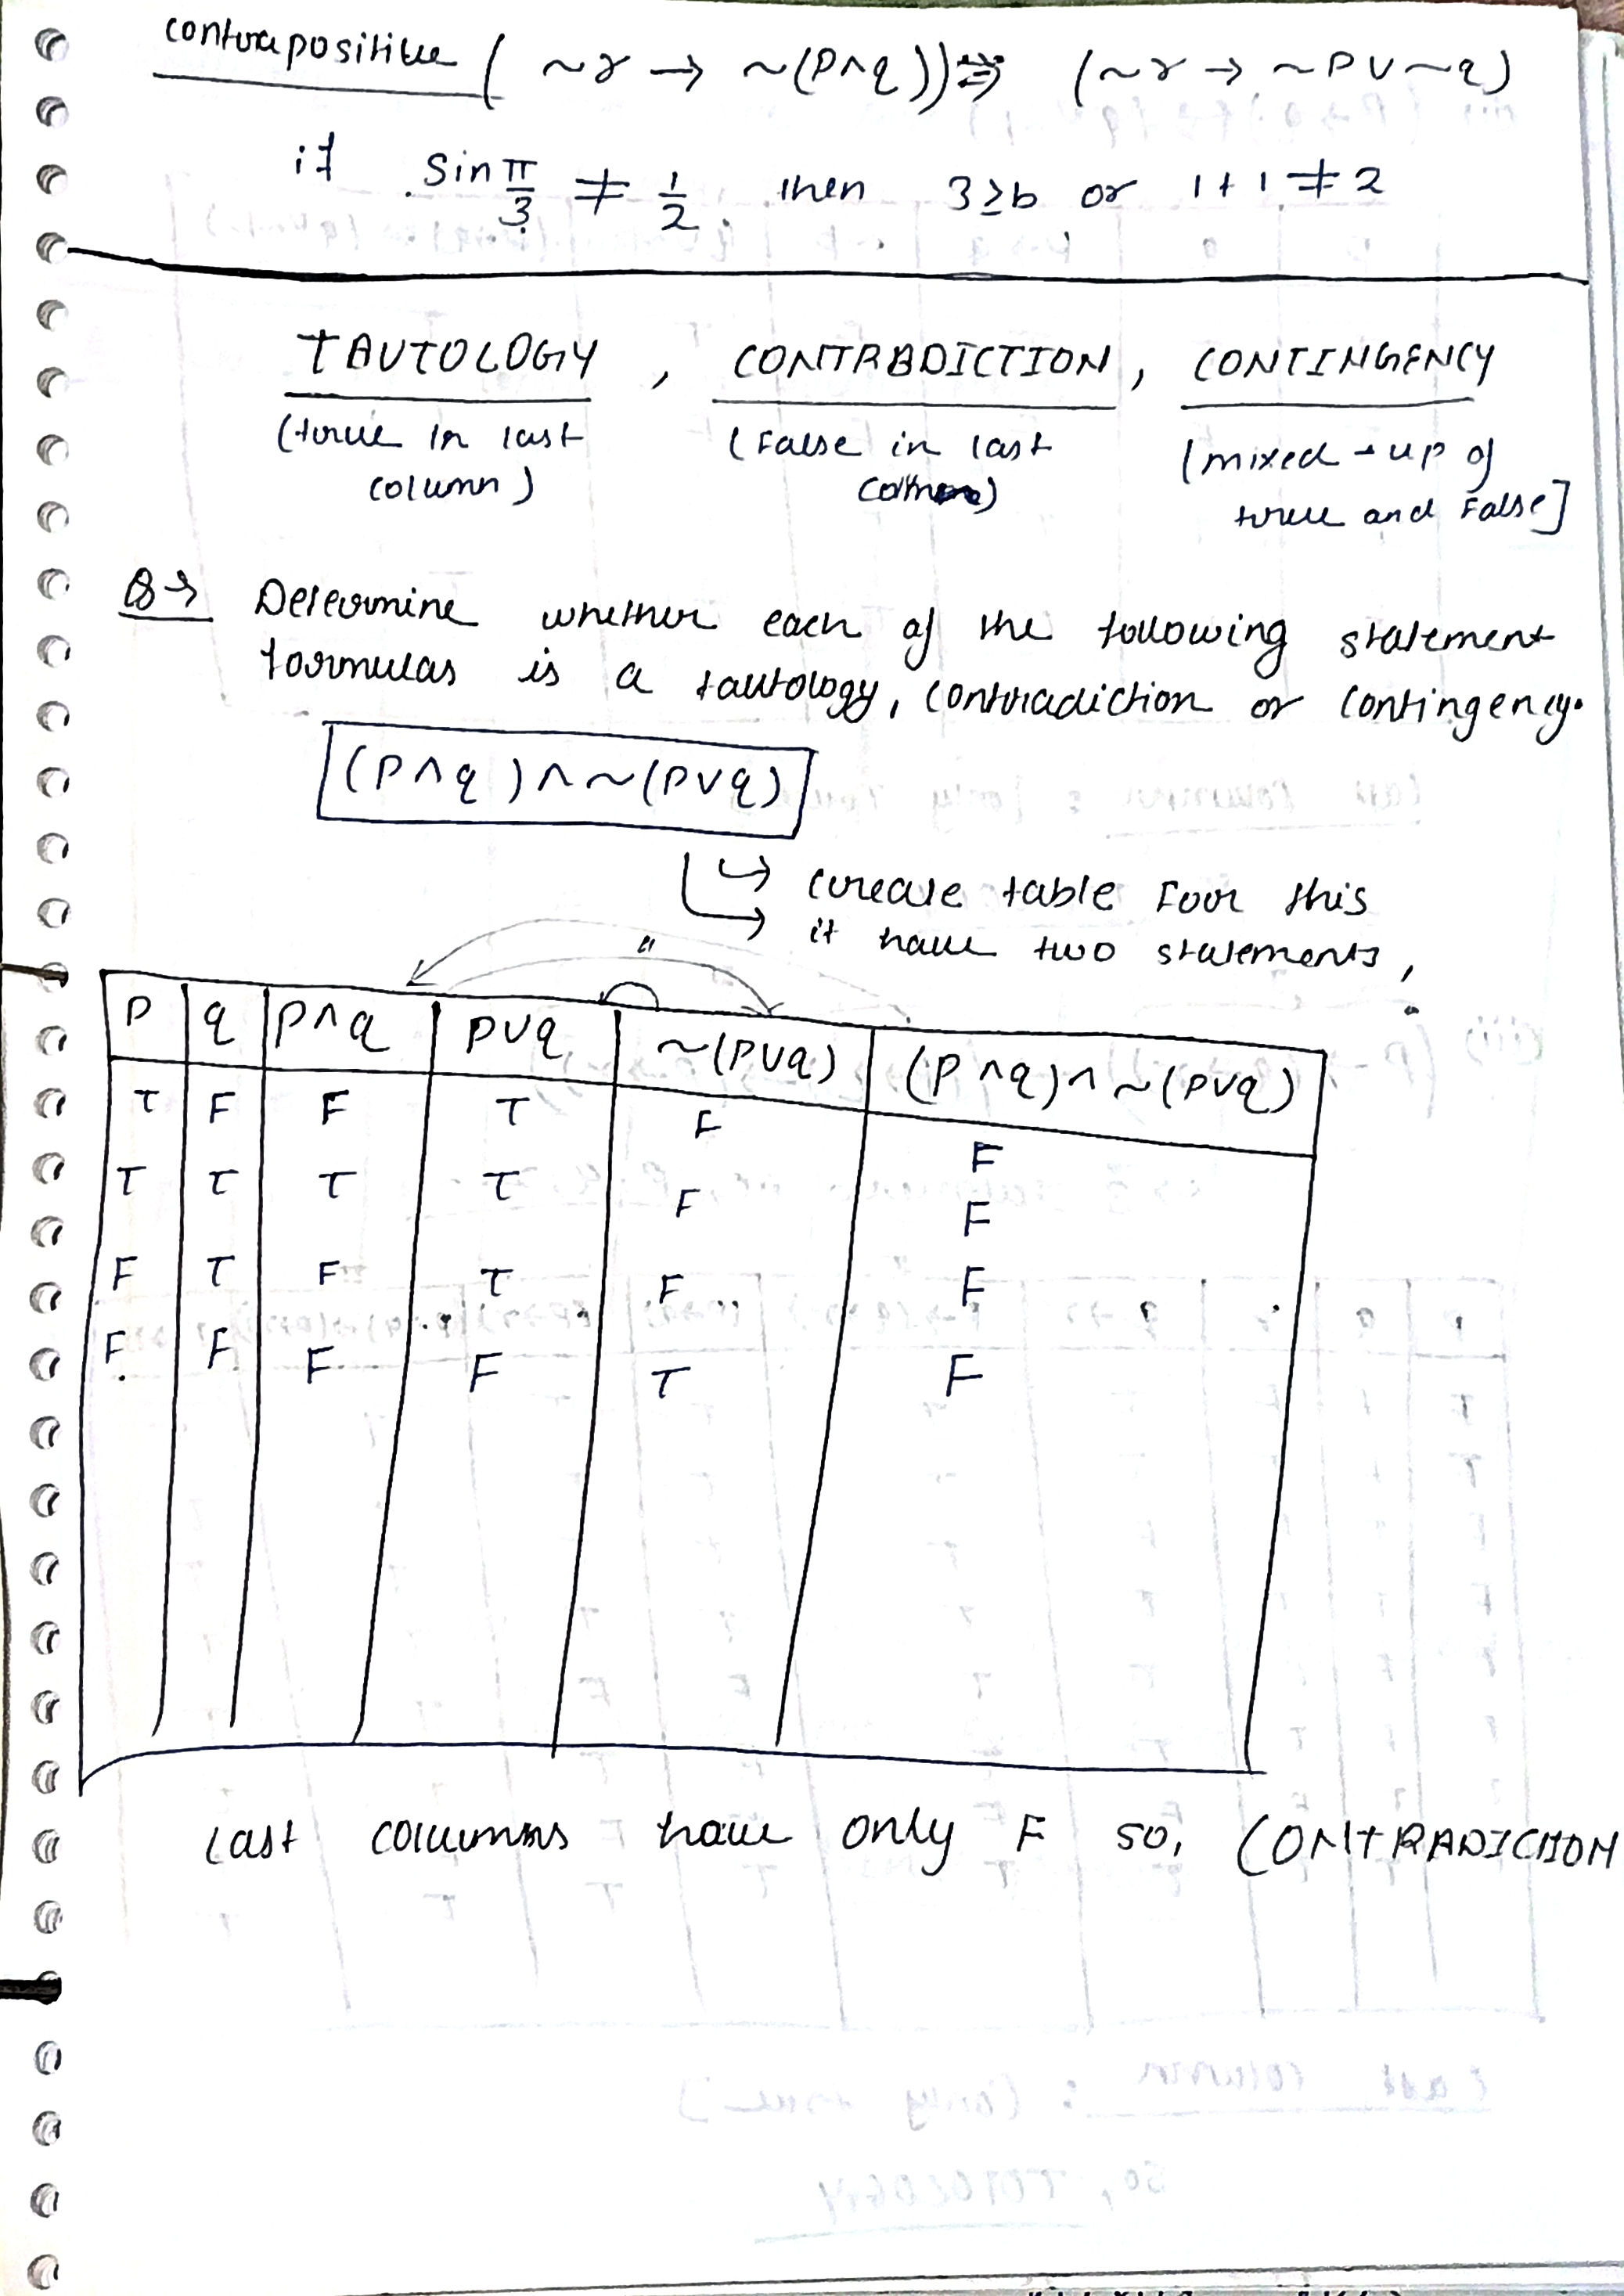 contrapositive ( ~r → ~(P∧q)) ⇒ (~r → ~P∨~q)
if Sin π/3 ≠ 1/2. then 3≥b or 1+1≠2
TAUTOLOGY , CONTRADICTION, CONTINGENCY
(true in last column) (False in last (mixed-up of true and False]
Q→ Determine whether each of the following statement
formulas is a tautology, contradiction or contingency.
(P∧q)∧~(P∨q)
↳ create table Foor this
→ it have two statements,
P q P∧q P∨q ~(P∨q) (P∧q)∧~(P∨q)
T F F T F F
T T T T F F
F T F T F F
F F F F T F
Last columns have only F so, CONTRADICTION